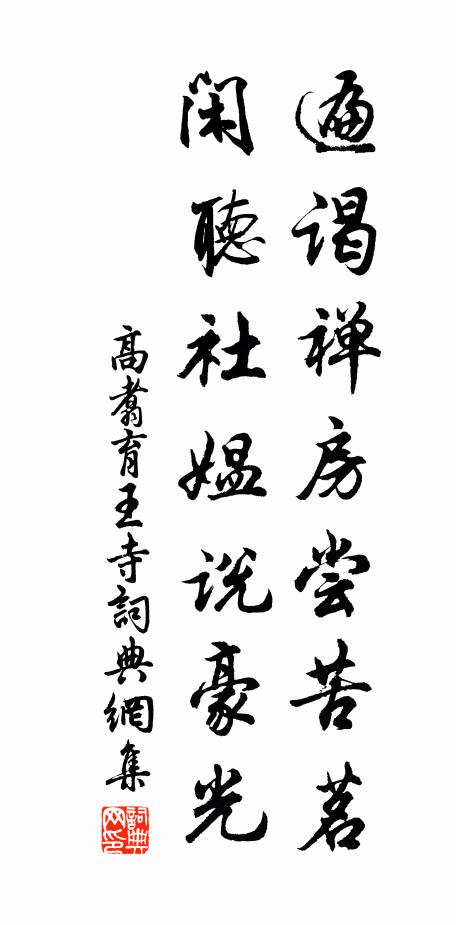 遍谒禅房尝苦茗
闲聽社媪说豪光
高翥育王寺詞典網集
詞典网印